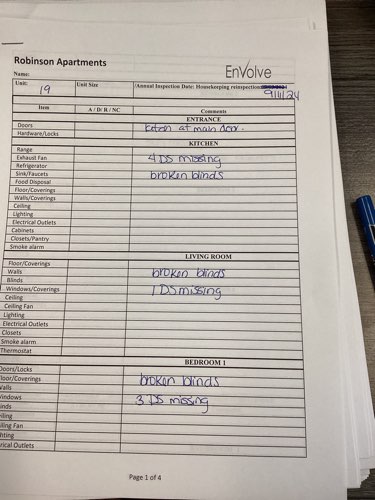 Robinson Apartments
EnVolve
Name:
Unit: 19 Unit Size /Annual Inspection Date: Housekeeping reinspection: 9/11/24
Item A / D/ R / NC Comments
ENTRANCE
Doors
Hardware/Locks at main door.
KITCHEN
Range
Exhaust Fan 4 DS missing
Refrigerator
Sink/Faucets broken blinds
Food Disposal
Floor/Coverings
Walls/Coverings
Ceiling
Lighting
Electrical Outlets
Cabinets
Closets/Pantry
Smoke alarm
LIVING ROOM
Floor/Coverings
Walls broken blinds
Blinds
Windows/Coverings 1 DS missing
Ceiling
Ceiling Fan
Lighting
Electrical Outlets
Closets
Smoke alarm
Thermostat
BEDROOM 1
Doors/Locks
loor/Coverings broken blinds
alls
indows 3 DS missing
inds
iling
iling Fan
hting
rical Outlets
Page 1 of 4